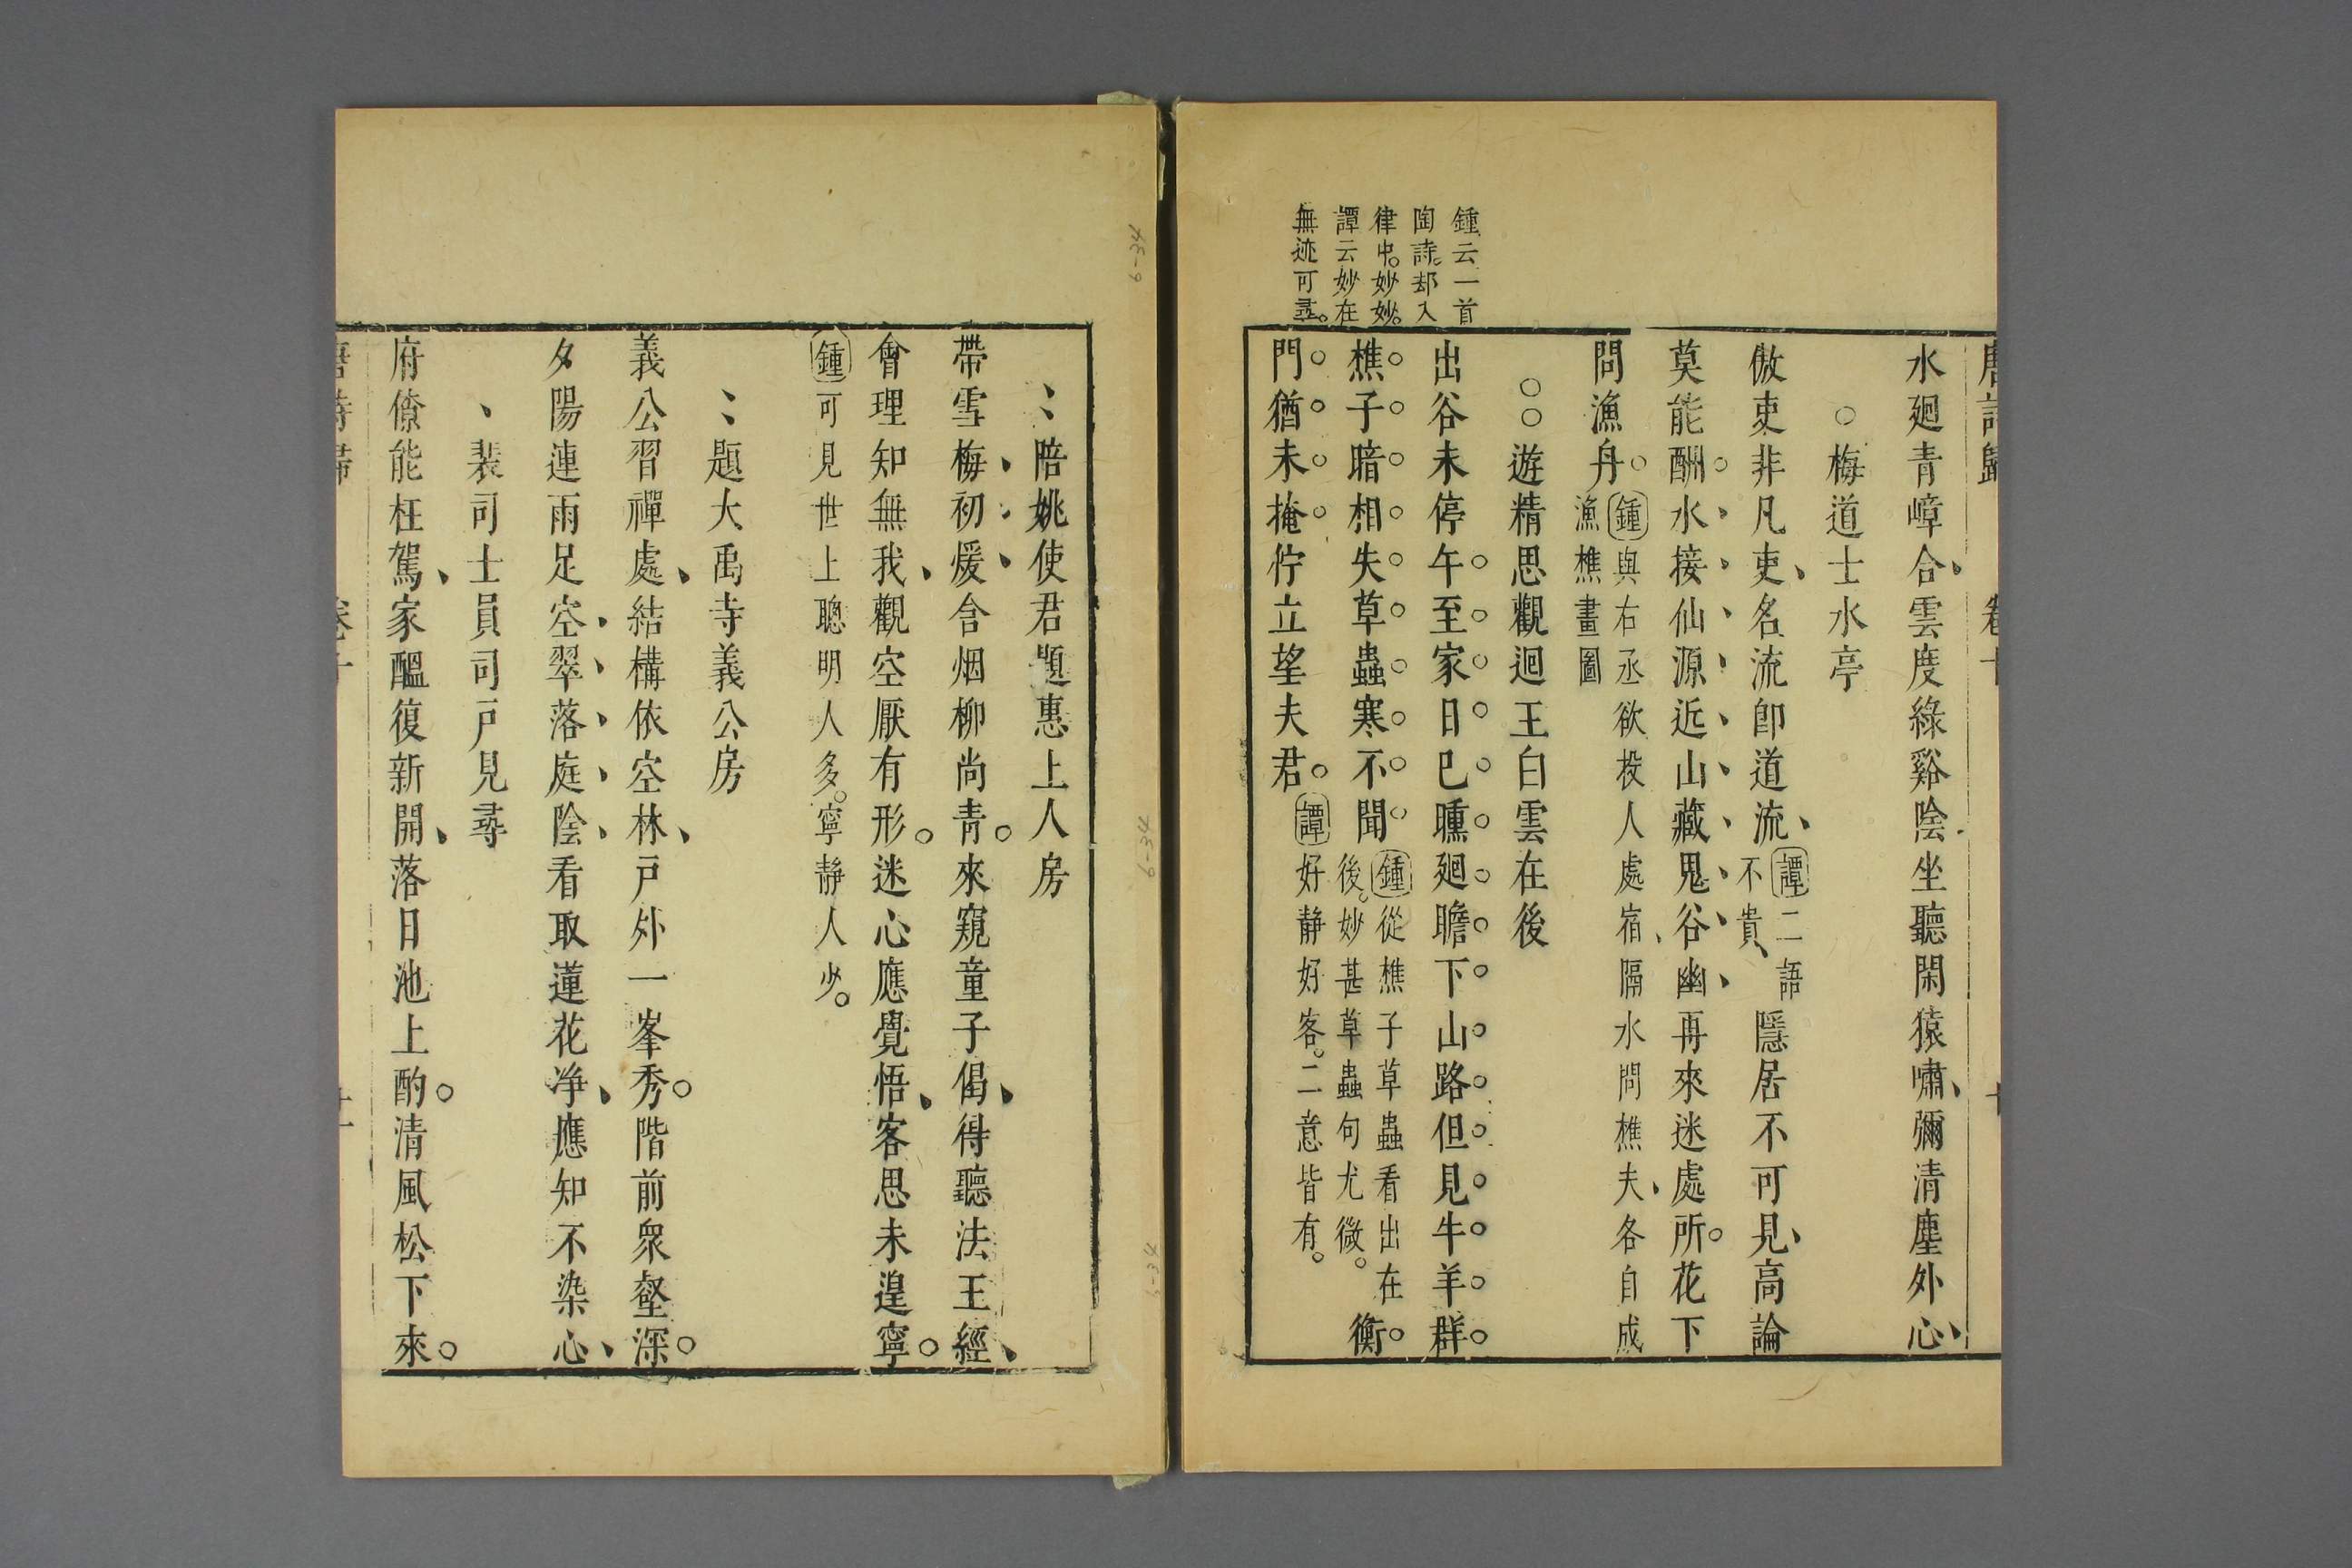 唐詩歸 卷十
水廻青嶂合雲度綠谿陰坐聽閑猿嘯彌清塵外心
○梅道士水亭
傲吏非凡吏名流卽道流
譚二語
不貴
隱居不可見高論
莫能酬水接仙源近山藏鬼谷幽再來迷處所花下
問漁舟
鍾與右丞欲投人處宿隔水問樵夫各自成
漁樵畫圖
○○遊精思觀迴王白雲在後
鍾云一首
陶詩却入
律中妙妙
譚云妙在
無迹可尋
出谷未停午至家日已曛廻瞻下山路但見牛羊群
樵子暗相失草蟲寒不聞
鍾從樵子草蟲看出在
後妙甚草蟲句尤微
衡
門猶未掩佇立望夫君
譚好靜好客二意皆有
陪姚使君題惠上人房
帶雪梅初煖含烟柳尚青來窺童子偈得聽法王經
會理知無我觀空厭有形迷心應覺悟客思未遑寧
鍾可見世上聰明人多寧靜人少
題大禹寺義公房
義公習禪處結構依空林戶外一峯秀階前衆壑深
夕陽連雨足空翠落庭陰看取蓮花净應知不染心
裴司士員司戶見尋
府僚能枉駕家醞復新開落日池上酌清風松下來
唐詩歸 卷十 十一
6-34
6-34
6-34